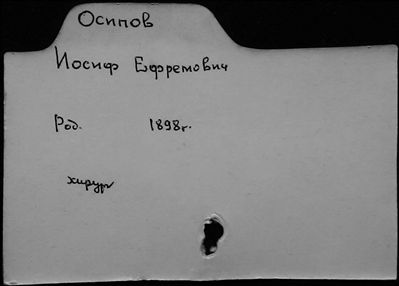 Осипов
Иосиф Ефремович
Род. 1898г.
хирург